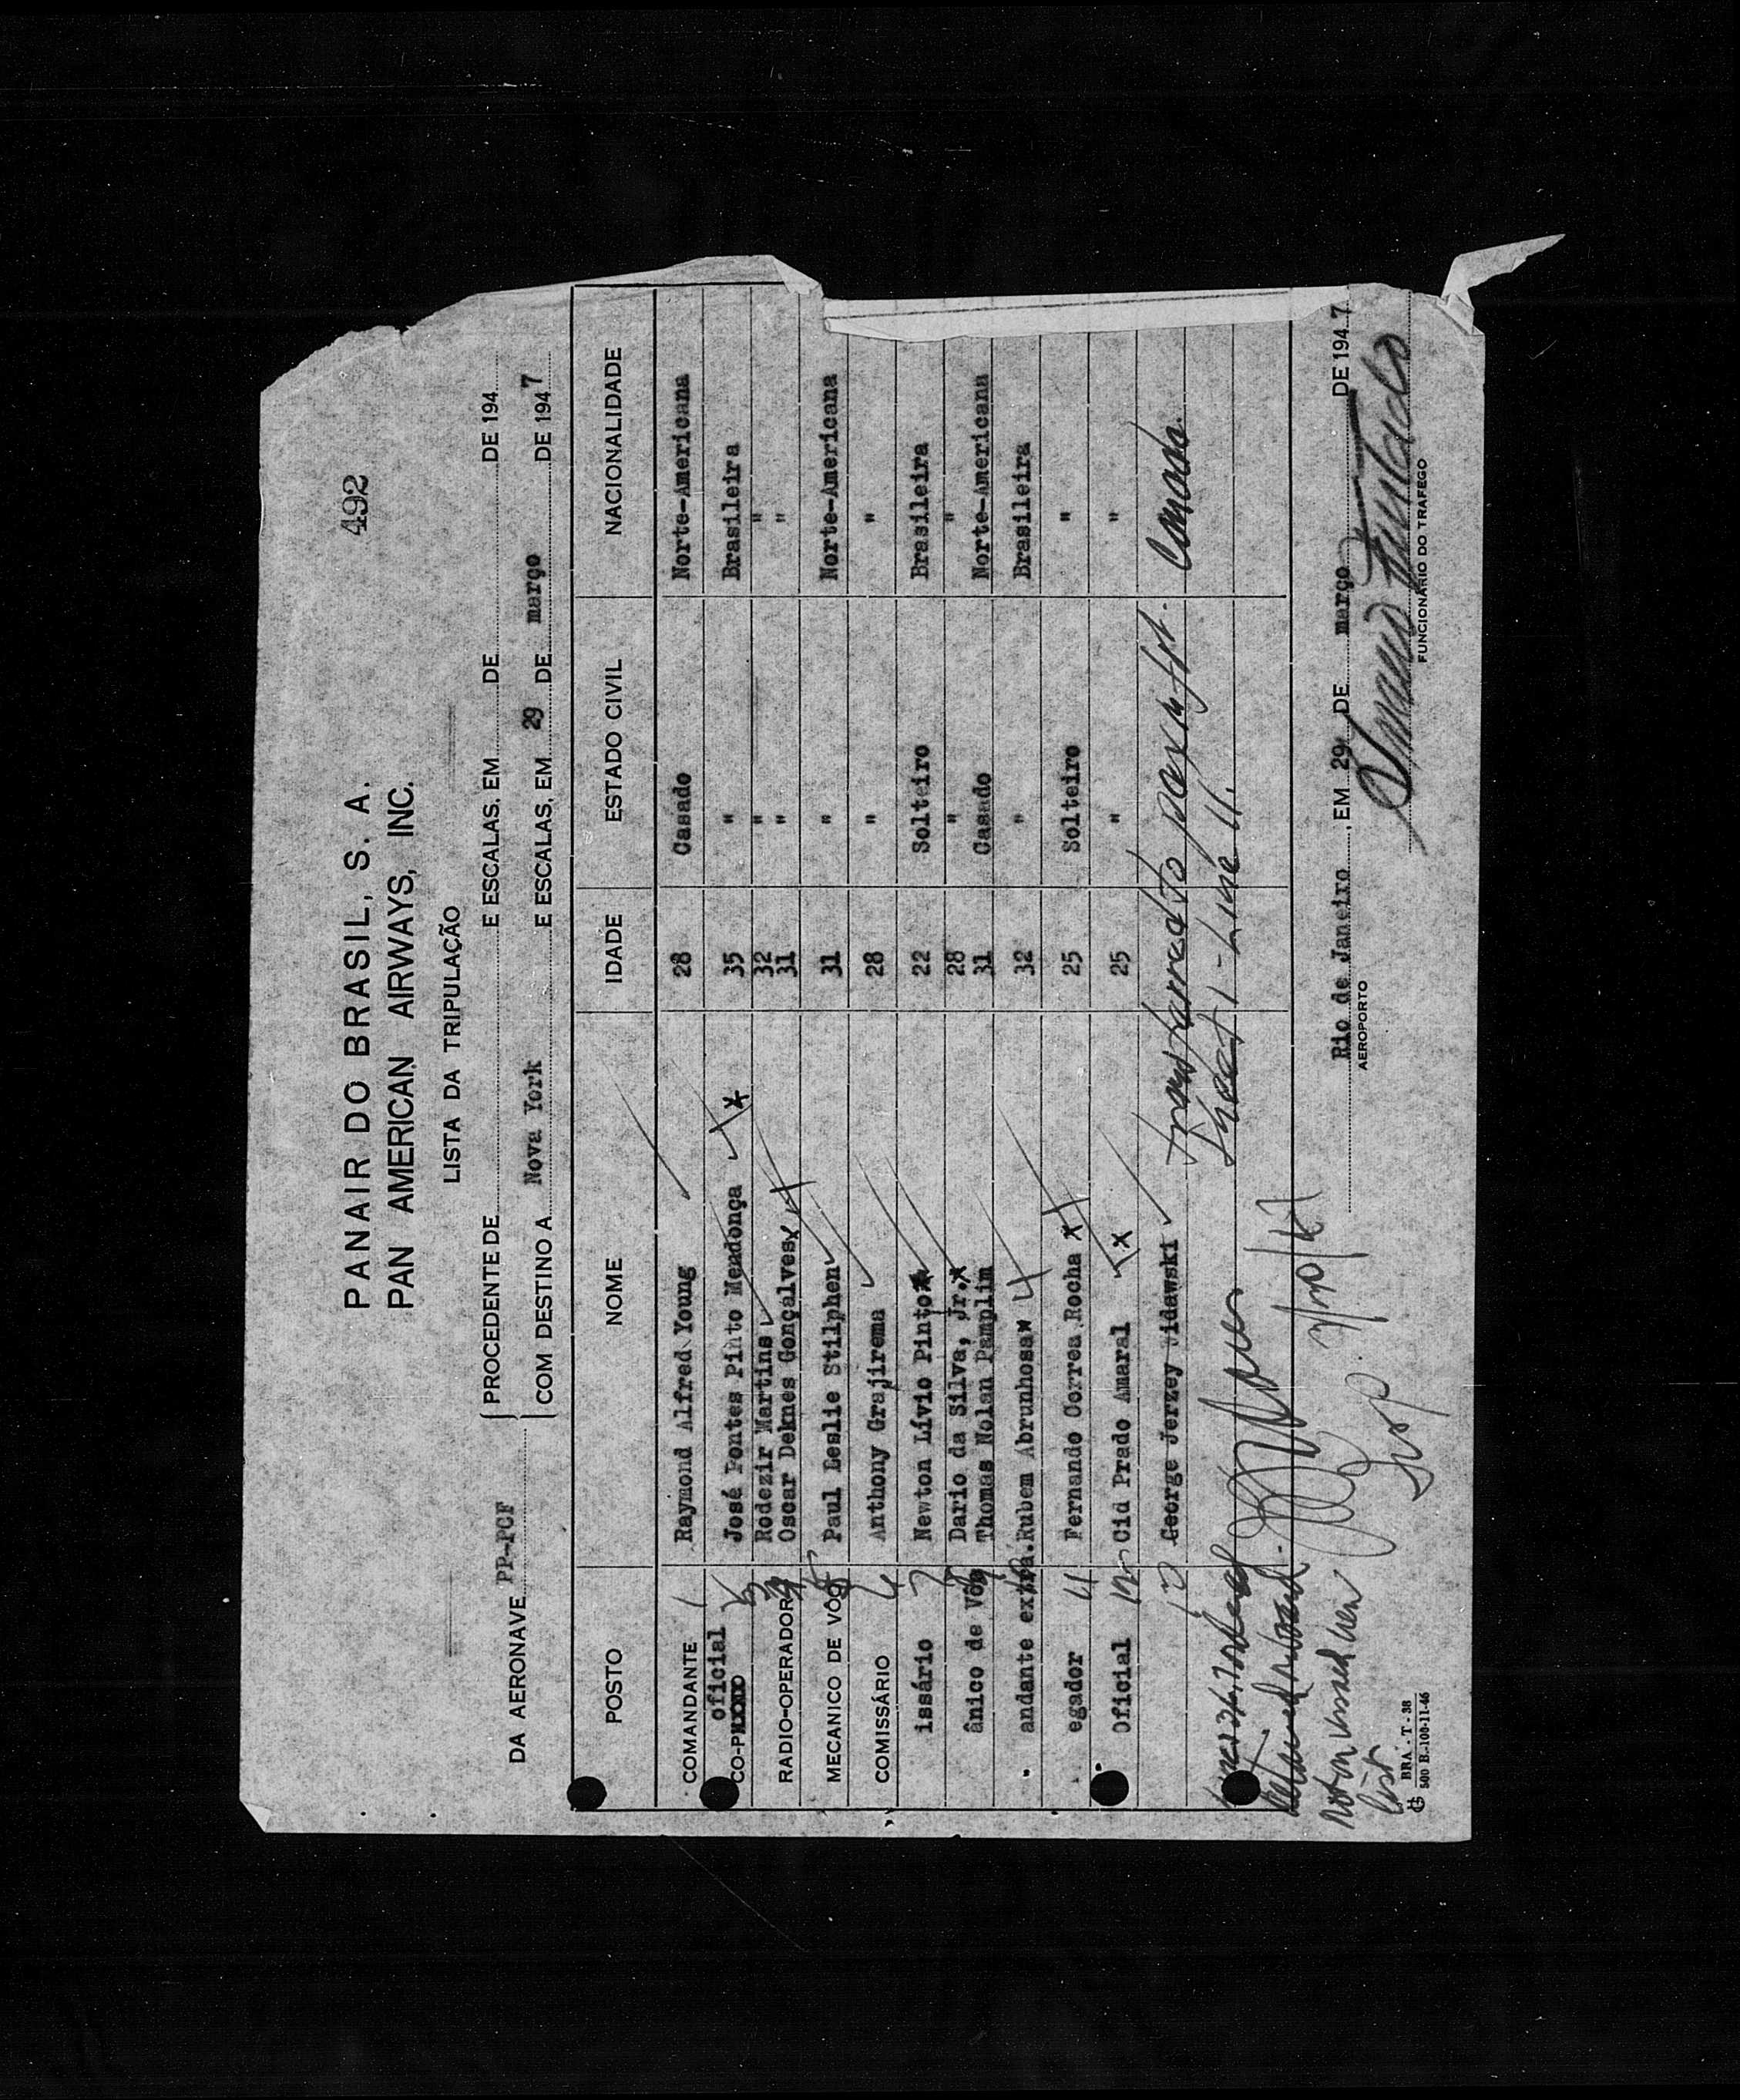 492
PANAIR DO BRASIL, S. A.
PAN AMERICAN AIRWAYS, INC.
LISTA DA TRIPULAÇÃO
DA AERONAVE PP-PCF
PROCEDENTE DE E ESCALAS, EM DE DE 194
COM DESTINO A Nova York E ESCALAS, EM 29 DE março DE 1947
POSTO NOME IDADE ESTADO CIVIL NACIONALIDADE
COMANDANTE 1 Raymond Alfred Young 28 Casado Norte-Americana
oficial
CO-P José Pontes Pinto Mendonça x 35 " Brasileira
Rodezir Martins 32 " "
RADIO-OPERADOR 4 Oscar Deknes Gonçalves x 31 " "
MECANICO DE VÔO 5 Paul Leslie Stilphen 31 " Norte-Americana
COMISSÁRIO 6 Anthony Grajirema 28 " "
issário 7 Newton Lívio Pinto x 22 Solteiro Brasileira
Dario da Silva, Jr. x 28 " "
ânico de Vôo Thomas Nolan Pamplim 31 Casado Norte-Americana
andante extra. Rubem Abrunhosa x 32 " Brasileira
egador 11 Fernando Correa Rocha x 25 Solteiro "
Oficial 12 Cid Prado Amaral x 25 " "
13 George Jerzey Widawski
not on vessel when
list
Rio de Janeiro, EM 29 DE março DE 1947
AEROPORTO
FUNCIONÁRIO DO TRAFEGO
BRA - T - 38
500 B.-100-11-46